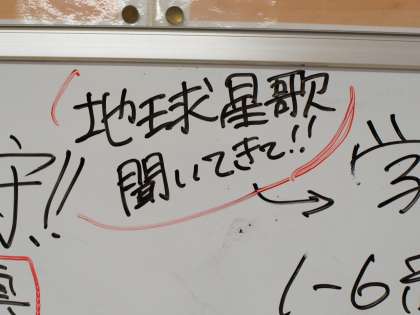 地球星歌
聞いてきて!!
守!!
学
1-6